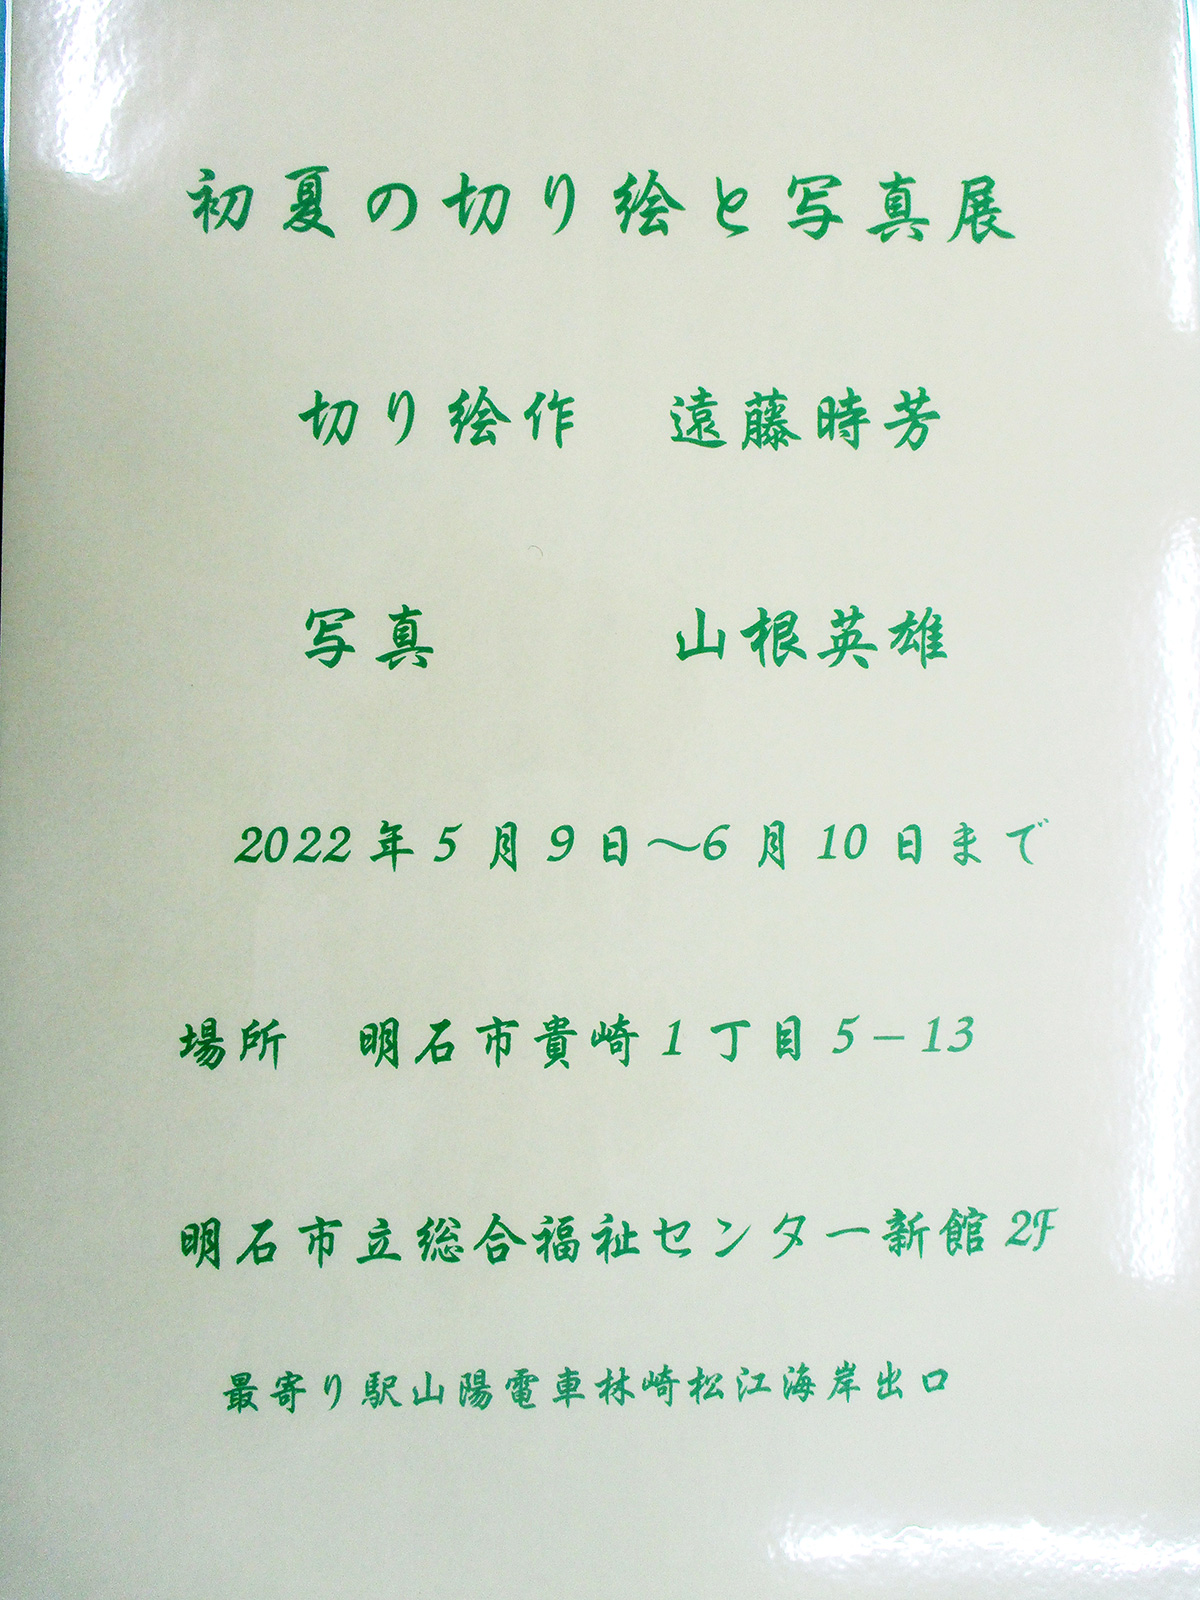 初夏の切り絵と写真展
切り絵作　遠藤時芳
写真　　　山根英雄
2022年5月9日～6月10日まで
場所　明石市貴崎1丁目5－13
明石市立総合福祉センター新館2F
最寄り駅山陽電車林崎松江海岸出口